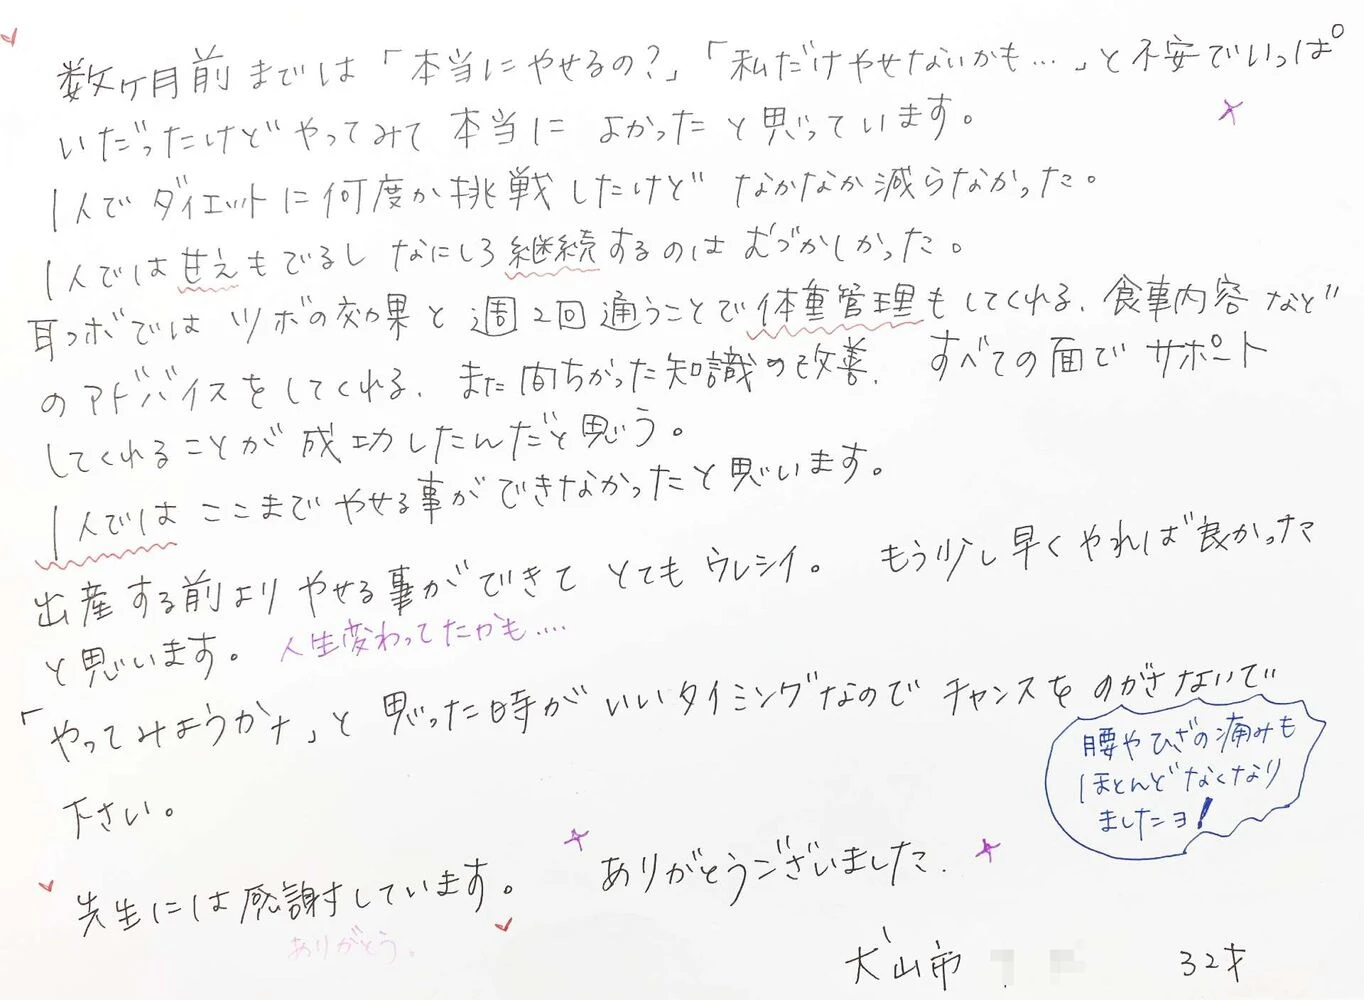 数ヶ月前までは「本当にやせるの?」「私だけやせないかも…」と不安でいっぱ
いだったけどやってみて本当によかったと思っています。
1人でダイエットに何度か挑戦したけどなかなか減らなかった。
1人では甘えもでるしなにしろ継続するのはむづかしかった。
耳つボではツボの効果と週2回通うことで体重管理もしてくれる、食事内容など
のアドバイスをしてくれる、また間ちがった知識の改善、すべての面でサポート
してくれることが成功したんだと思う。
1人ではここまでやせる事ができなかったと思います。
出産する前よりやせる事ができてとてもウレシイ。もう少し早くやれば良かった
と思います。人生変わってたかも….
「やってみようかナ」と思った時がいいタイミングなのでチャンスをのがさないで
下さい。
腰やひざの痛みも
ほとんどなくなり
ましたヨ!
先生には感謝しています。ありがとうございました.
ありがとう。
犬山市 32才